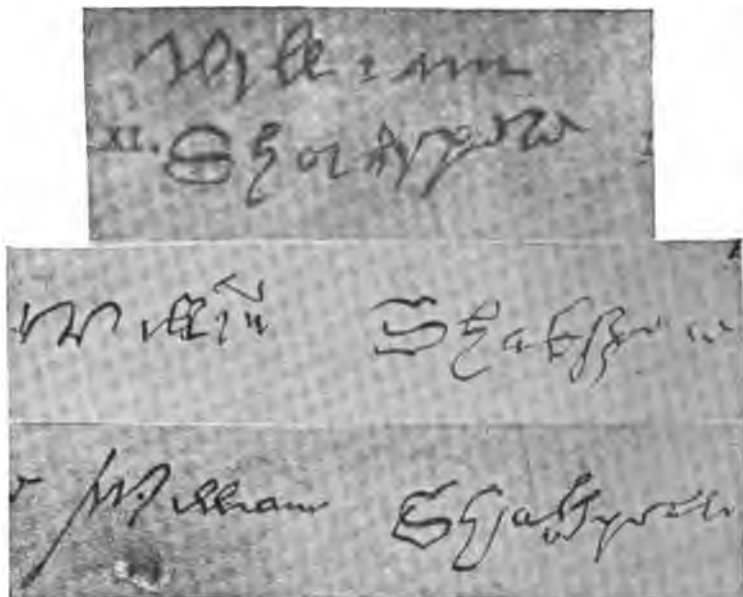 William
XI. Shakspere
Willm Shakspere
William Shakspeare